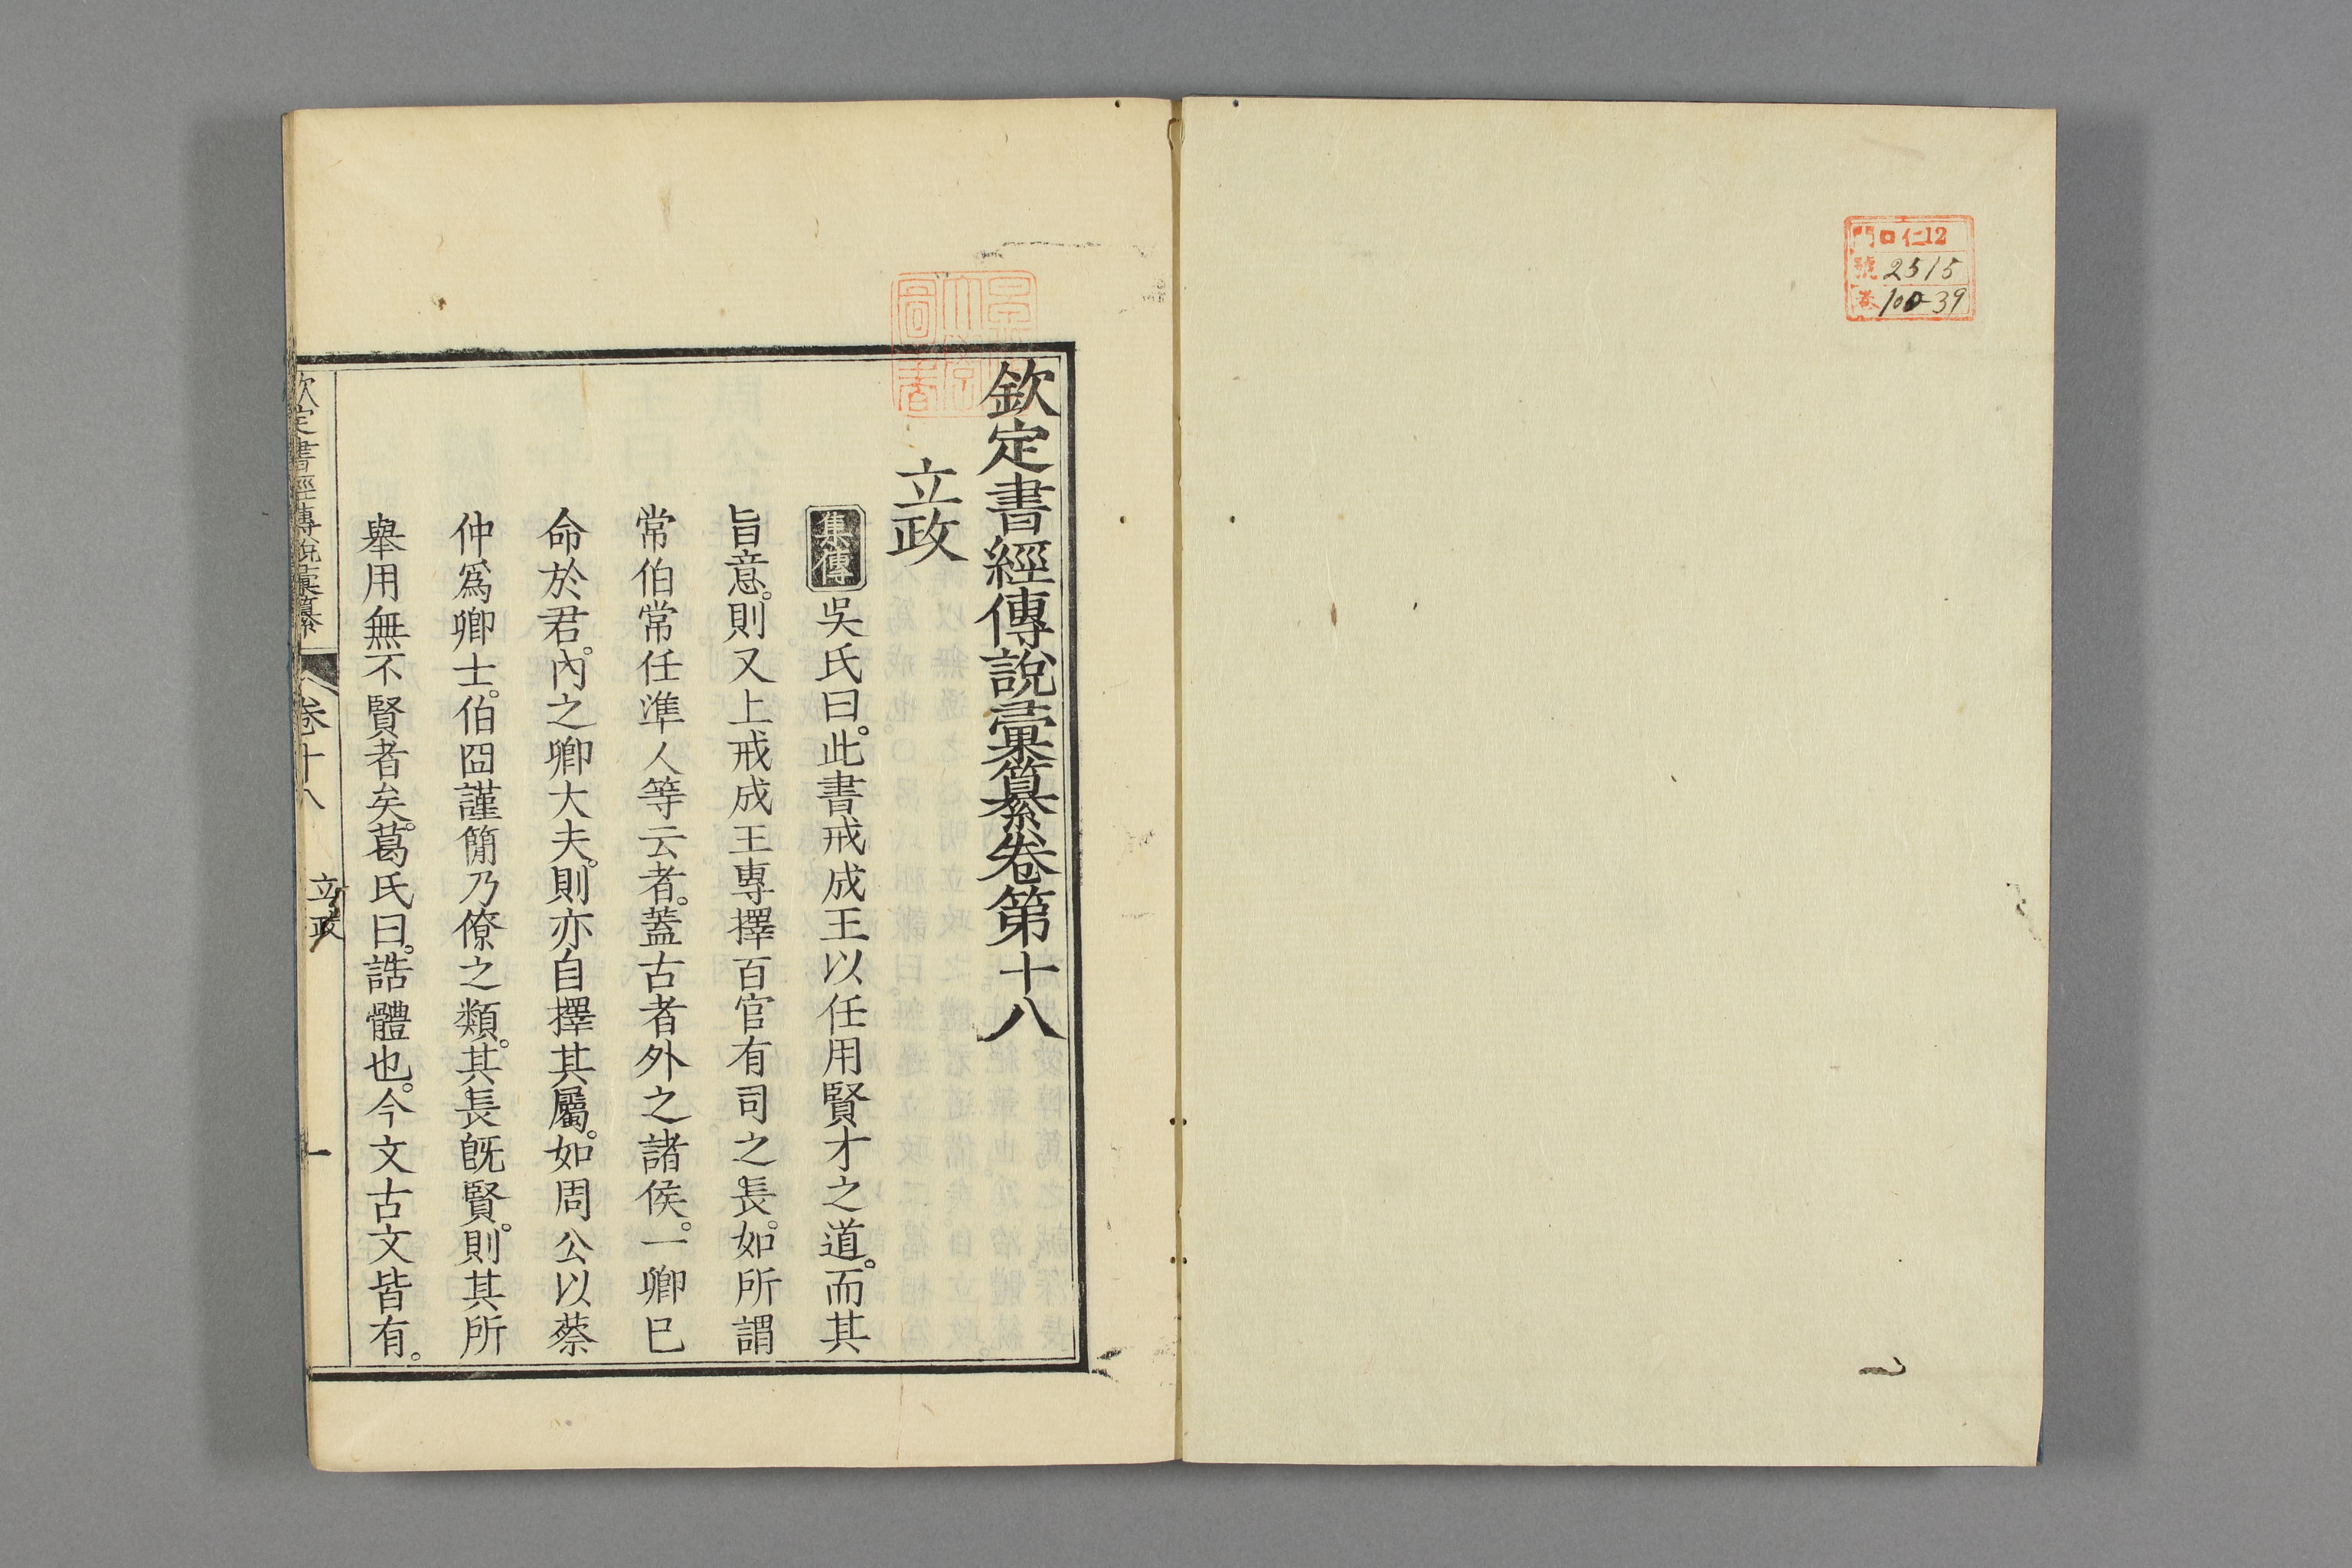 門 口仁12
號 2515
卷 100-39
欽定書經傳說彙纂卷第十八
立政
集傳 吳氏曰。此書戒成王以任用賢才之道。而其
旨意。則又上戒成王專擇百官有司之長。如所謂
常伯常任準人等云者。蓋古者外之諸侯。一卿巳
命於君。內之卿大夫。則亦自擇其屬。如周公以蔡
仲爲卿士。伯冏謹簡乃僚之類。其長旣賢。則其所
舉用無不賢者矣。葛氏曰。誥體也。今文古文皆有。
欽定書經傳說彙纂 卷十八 立政 一